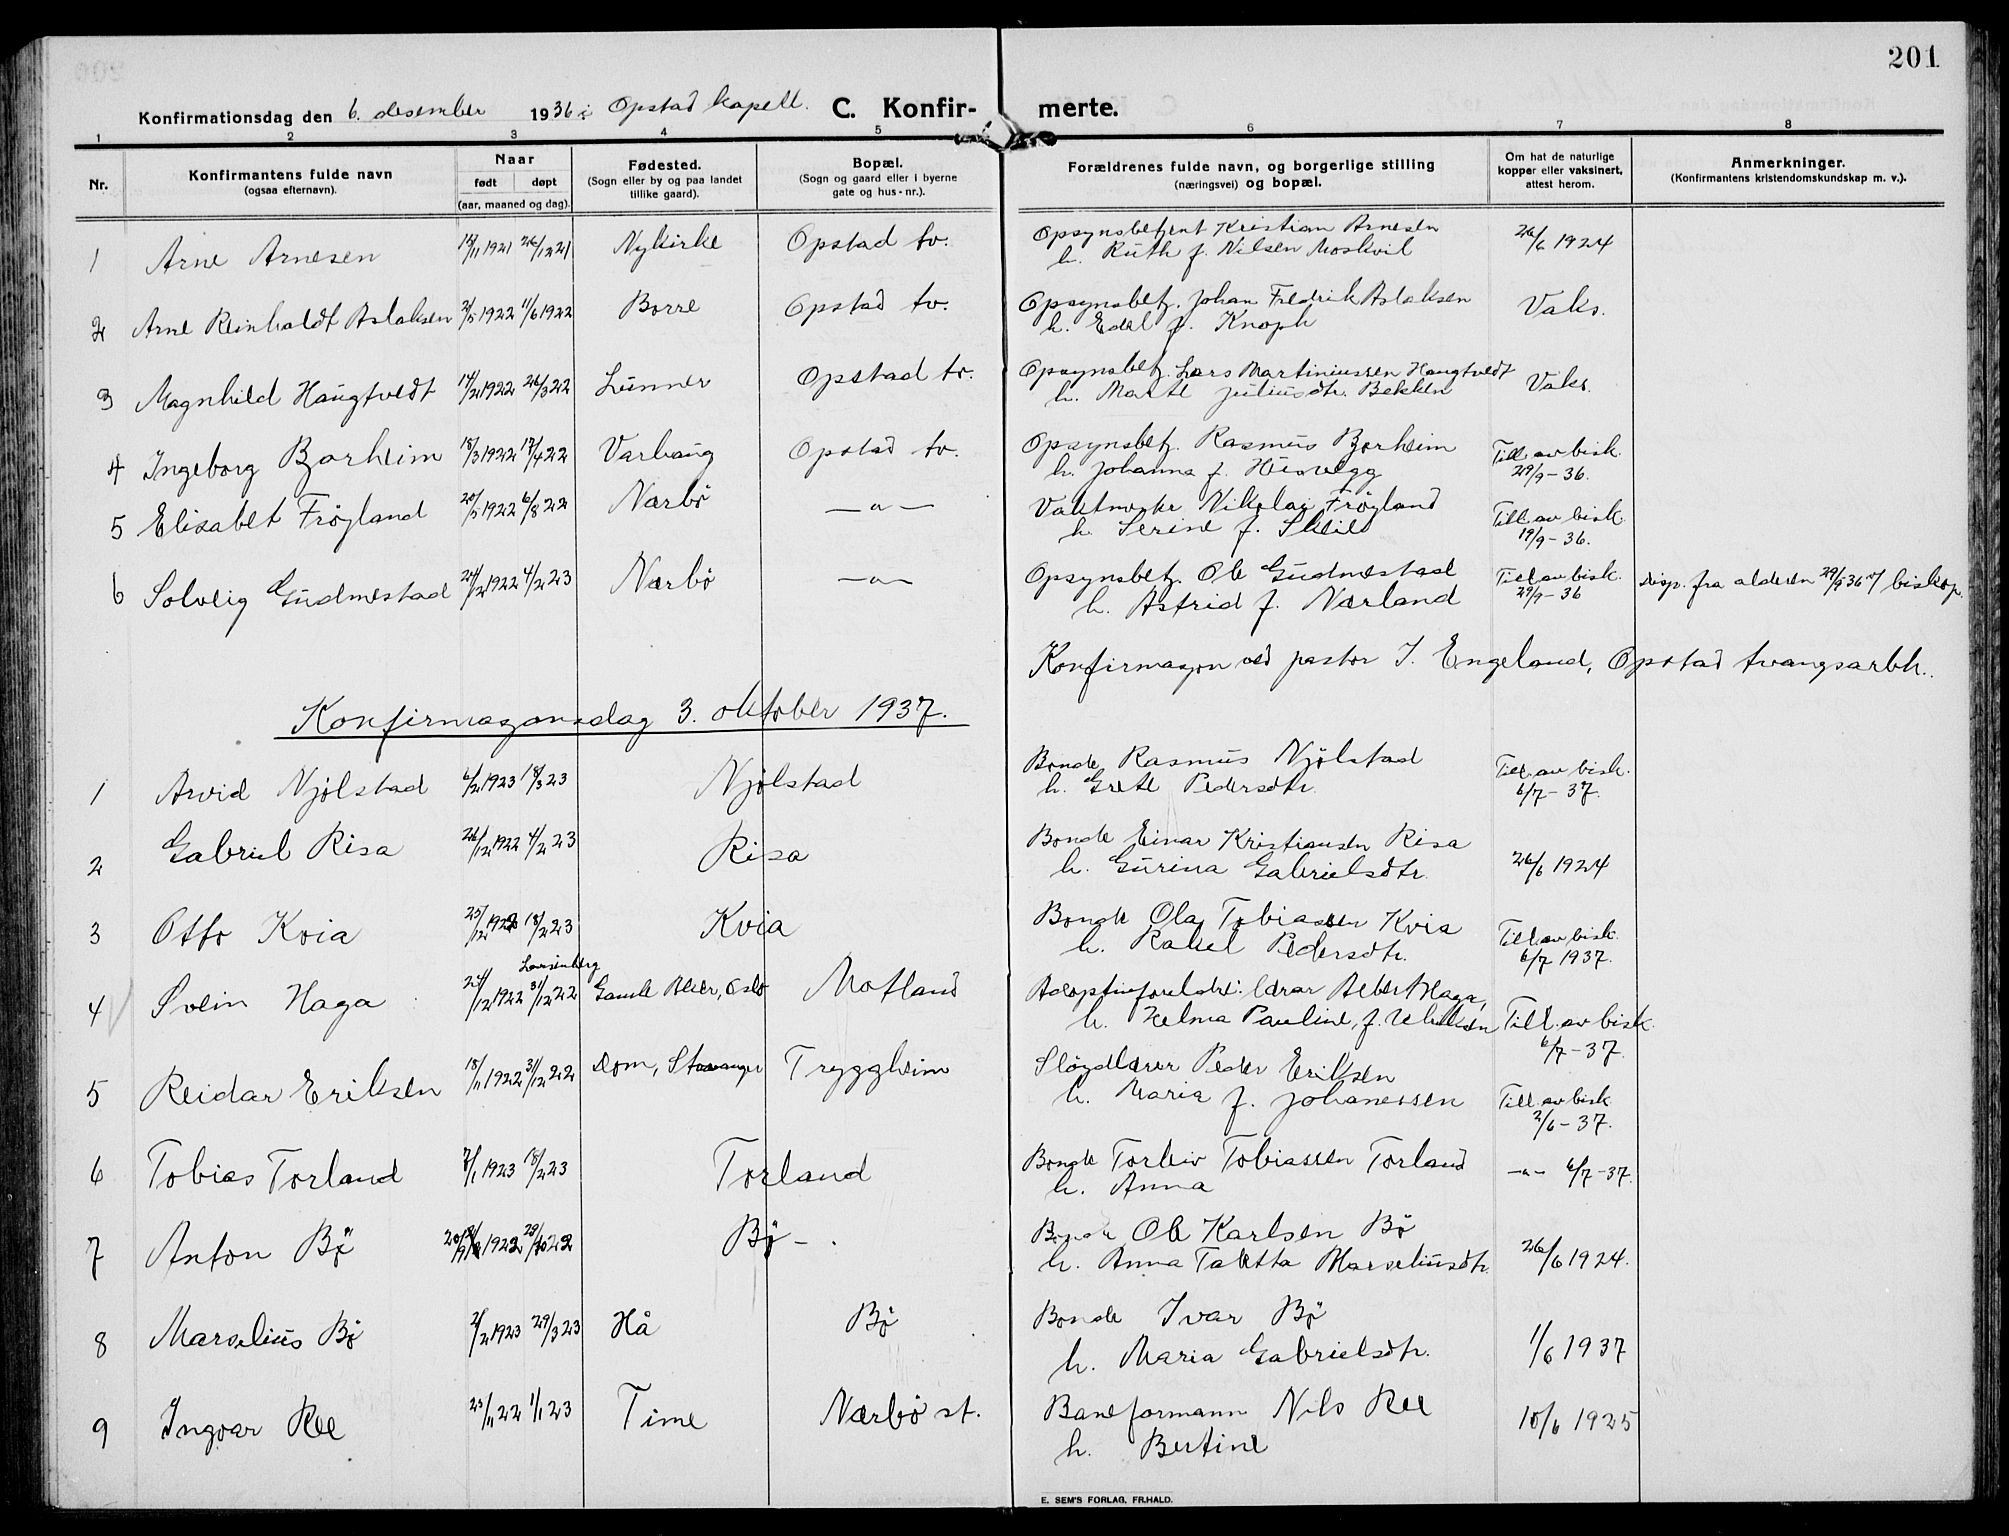 201
Konfirmationsdag den 6. desember 1936 i Opstad kapell. C. Konfir- merte.
1 2 3 4 5 6 7 8
Nr. Konfirmantens fulde navn (ogsaa efternavn). Naar født døpt (aar, maaned og dag). Fødested. (Sogn eller by og paa landet tillike gaard). Bopæl. (Sogn og gaard eller i byerne gate og hus-nr.). Forældrenes fulde navn, og borgerlige stilling (næringsvei) og bopæl. Om hat de naturlige kopper eller vaksinert, attest herom. Anmerkninger. (Konfirmantens kristendomskundskap m. v.).
1 Arne Arnesen /11 1921 26/12 21 Nykirke Opstad tv. Opsynsbetjent Kristian Arnesen 26/6 1924
h. Ruth f. Nilsen Moskvil
2 Arne Reinholdt Aslaksen 2/5 1922 11/6 1922 Borre Opstad tv. Opsynsbetj. Johan Fredrik Aslaksen Vaks.
h. Edel f. Knoph
3 Magnhild Haugtvedt 14/2 1922 26/3 22 Lunner Opstad tv. Opsynsbetj. Lars Martiniussen Haugtvedt Vaks.
h. Marte Juliusdtr. Bekken
4 Ingeborg Borheim 18/3 1922 17/4 22 Varhaug Opstad tv. Opsynsbetj. Rasmus Borheim Till. av bisk.
h. Johanna f. 29/9-36.
5 Elisabet Frøyland 20/5 1922 6/8 22 Nærbø —"— Vaktmester Nikolai Frøyland Till. av bisk.
h. Serine f. Skeie 19/9-36.
6 Solveig Gudmestad 24/12 1922 4/2 23 Nærbø —"— Opsynsbetj. Ole Gudmestad Till. av bisk. disp. fra alderen 29/9 36 v/ biskop.
h. Astrid f. Nærland 29/9-36
Konfirmasjon ved pastor I. Engeland, Opstad tvangsarbh.
Konfirmasjonsdag 3. oktober 1937.
1 Arvid Njølstad 6/2 1923 18/3 23 Njølstad Bonde Rasmus Njølstad Till. av bisk.
h. Grete Pedersdtr. 6/7-37.
2 Gabriel Risa 26/12 1922 4/2 23 Risa Bonde Einar Kristiansen Risa 26/6 1924
h. Gurina Gabrielsdtr.
3 Otto Kvia 25/12 1922 18/2 23 Kvia Bonde Olaj Tobiassen Kvia Till. av bisk.
h. Rakel Pedersdtr. 6/7 1937.
4 Svein Haga 24/12 1922 31/12 22 Gamle Aker, Oslo Motland Adoptivforeldre: lærar Albert Haga, Till. av bisk.
h. Helma Pauline, f. 6/7-37.
5 Reidar Eriksen 18/11 1922 31/12 22 Dom, Stavanger Tryggheim Sløydlærer Peder Eriksen Till. av bisk.
h. Maria f. Johanessen 2/6-37.
6 Tobias Torland 7/1 1923 18/2 23 Torland Bonde Torleiv Tobiassen Torland -"- 6/7-37.
h. Anna
7 Anton Bø 1922 29/10 22 Bø -. Bonde Ole Karlsen Bø 26/6 1924.
h. Anna Taletta Marseliusdtr.
8 Marselius Bø 2/2 1923 29/3 23 Hå Bø Bonde Ivar Bø 1/6 1937
h. Maria Gabrielsdtr.
9 Ingvar Ree 23/11 22 1/1 23 Time Nærbø st. Baneformann Nils Ree 10/6 1925
h. Bertine
E. SEM'S FORLAG, FR.HALD.